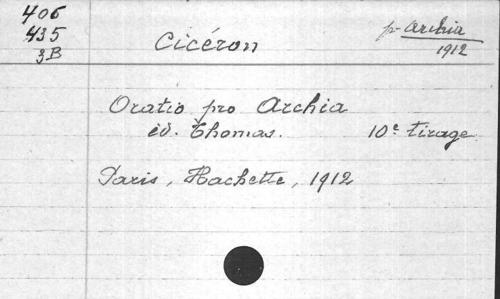 406
435
3B
Cicéron
p. Archia
1912
Oratio pro Archia
éd. Thomas. 10e tirage
Paris, Hachette, 1912